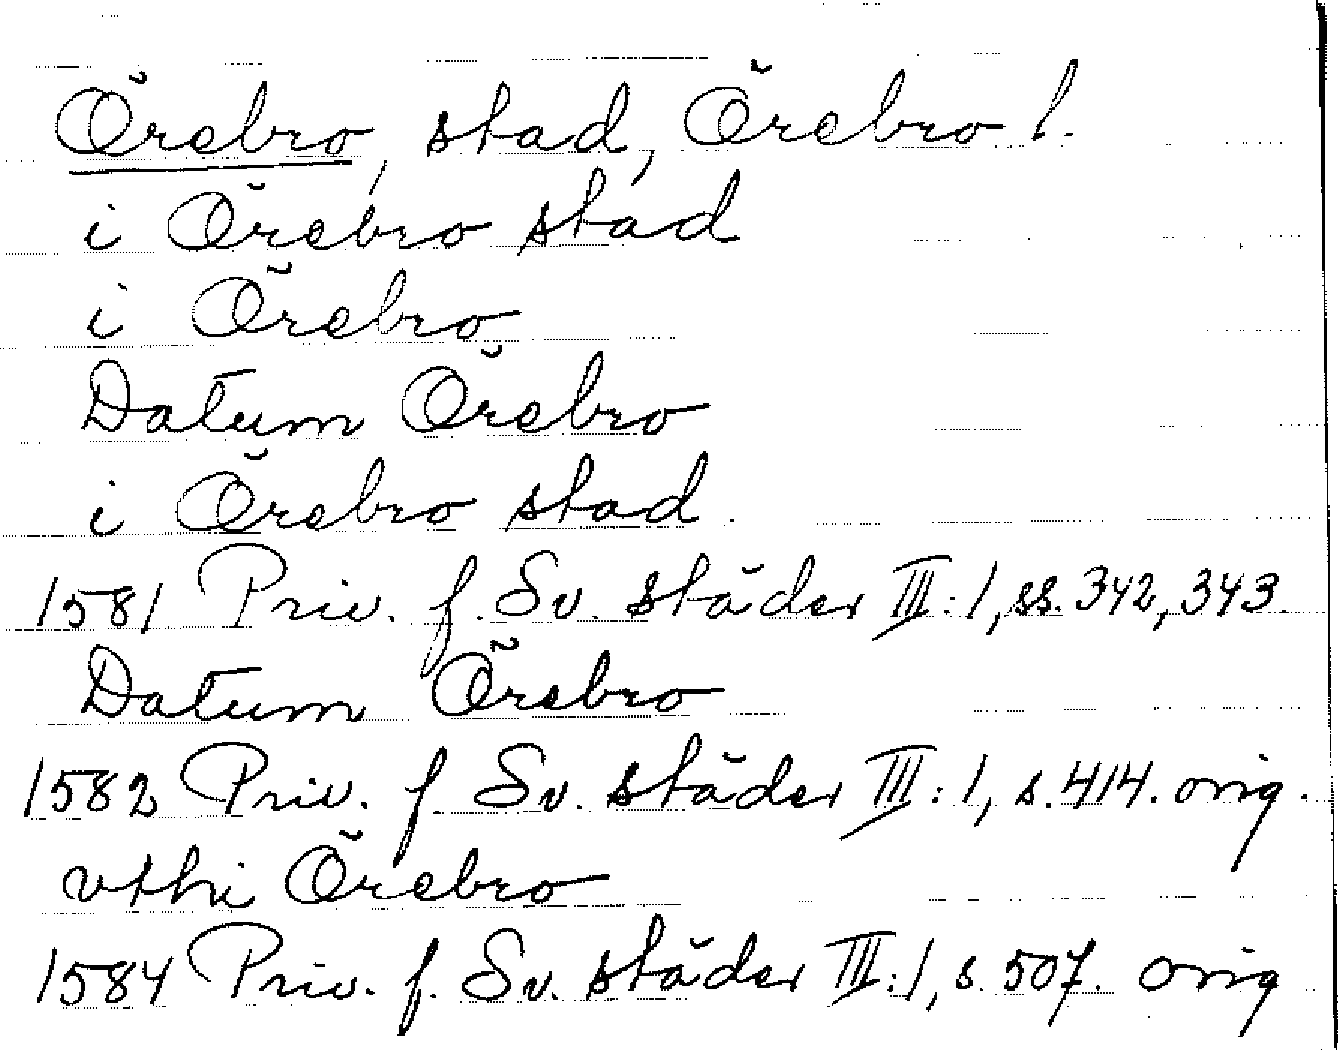 Örebro, stad, Örebro l.
i Örebro stad
i Örebro
Datum Örebro
i Örebro stad.
1581 Priv. f. Sv. städer III:1, ss. 342, 343.
Datum Örebro
1582 Priv. f Sv. städer III:1, s. 414. orig.
vthi Örebro
1584 Priv. f. Sv. städer III:1, s. 507. orig